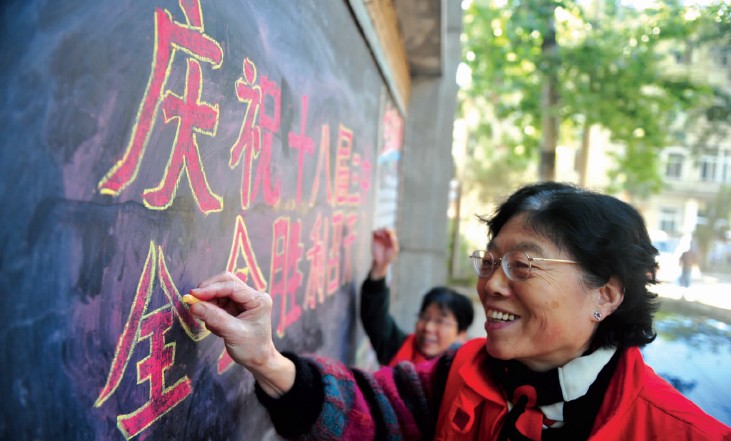 庆祝十八届三中
全会胜利召开